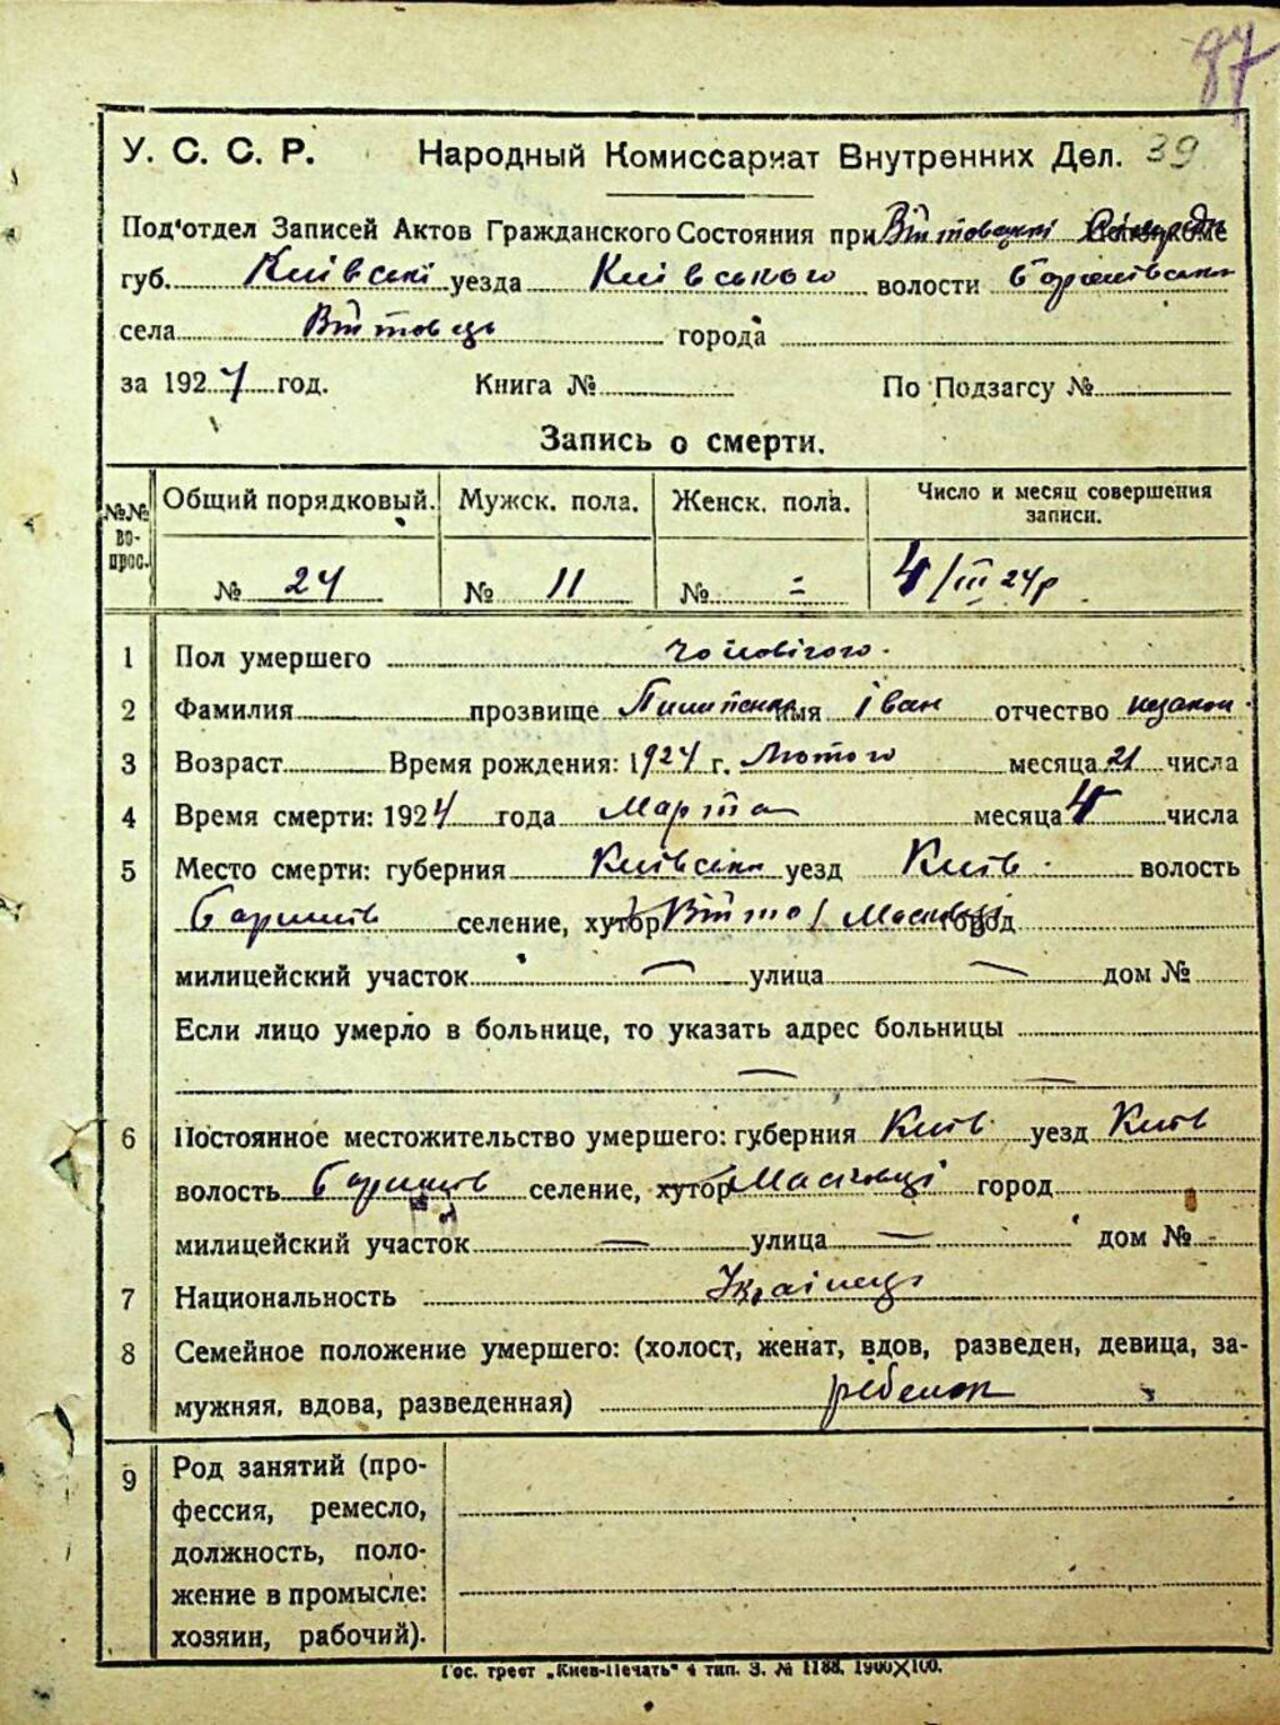 87
У. С. С. Р. Народный Комиссариат Внутренних Дел. 39
Под'отдел Записей Актов Гражданского Состояния при Війтовецкі
губ. Київські уезда Київського волости Баришівськи
села Війтовець города
за 1924 год. Книга № По Подзагсу №
Запись о смерти.
№№ вопрос. Общий порядковый. Мужск. пола. Женск. пола. Число и месяц совершения записи.
№ 24 № 11 № = 4/III 24р.
1 Пол умершего чоловічого.
2 Фамилия прозвище имя Іван отчество
3 Возраст Время рождения: 1924 г. Лютого месяца 21 числа
4 Время смерти: 1924 года Марта месяца 4 числа
5 Место смерти: губерния Київська уезд Київ. волость
Баришів селение, хутор Війтов город
милицейский участок — улица — дом №
Если лицо умерло в больнице, то указать адрес больницы
— —
6 Постоянное местожительство умершего: губерния Київ уезд Київ
волость Баришів селение, хутор Масківці город
милицейский участок — улица — дом № -
7 Национальность Українець
8 Семейное положение умершего: (холост, женат, вдов, разведен, девица, за-
мужняя, вдова, разведенная) ребенок
9 Род занятий (про-
фессия, ремесло,
должность, поло-
жение в промысле:
хозяин, рабочий).
Гос. трест „Киев-Печать" 4 тип. З. № 1188. 1900×100.